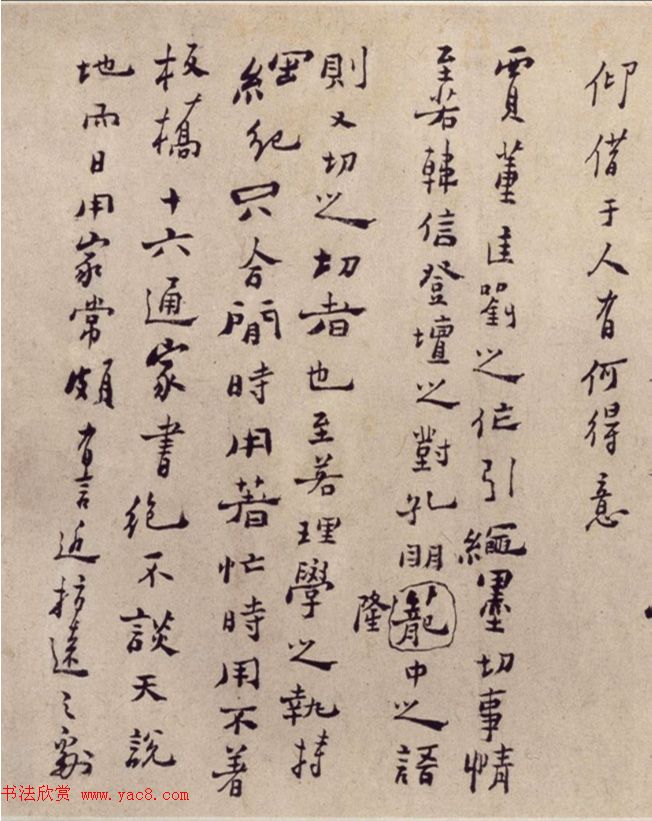 仰借于人有何得意
賈董匡劉之作引繩墨切事情
至若韓信登壇之對孔明蘢中之語
隆
則又切之切者也至若理學之執持
綱紀只合閒時用著忙時用不著
板橋十六通家書絶不談天說
地而日用家常頗有言近指遠之處
书法欣赏 www.yac8.com